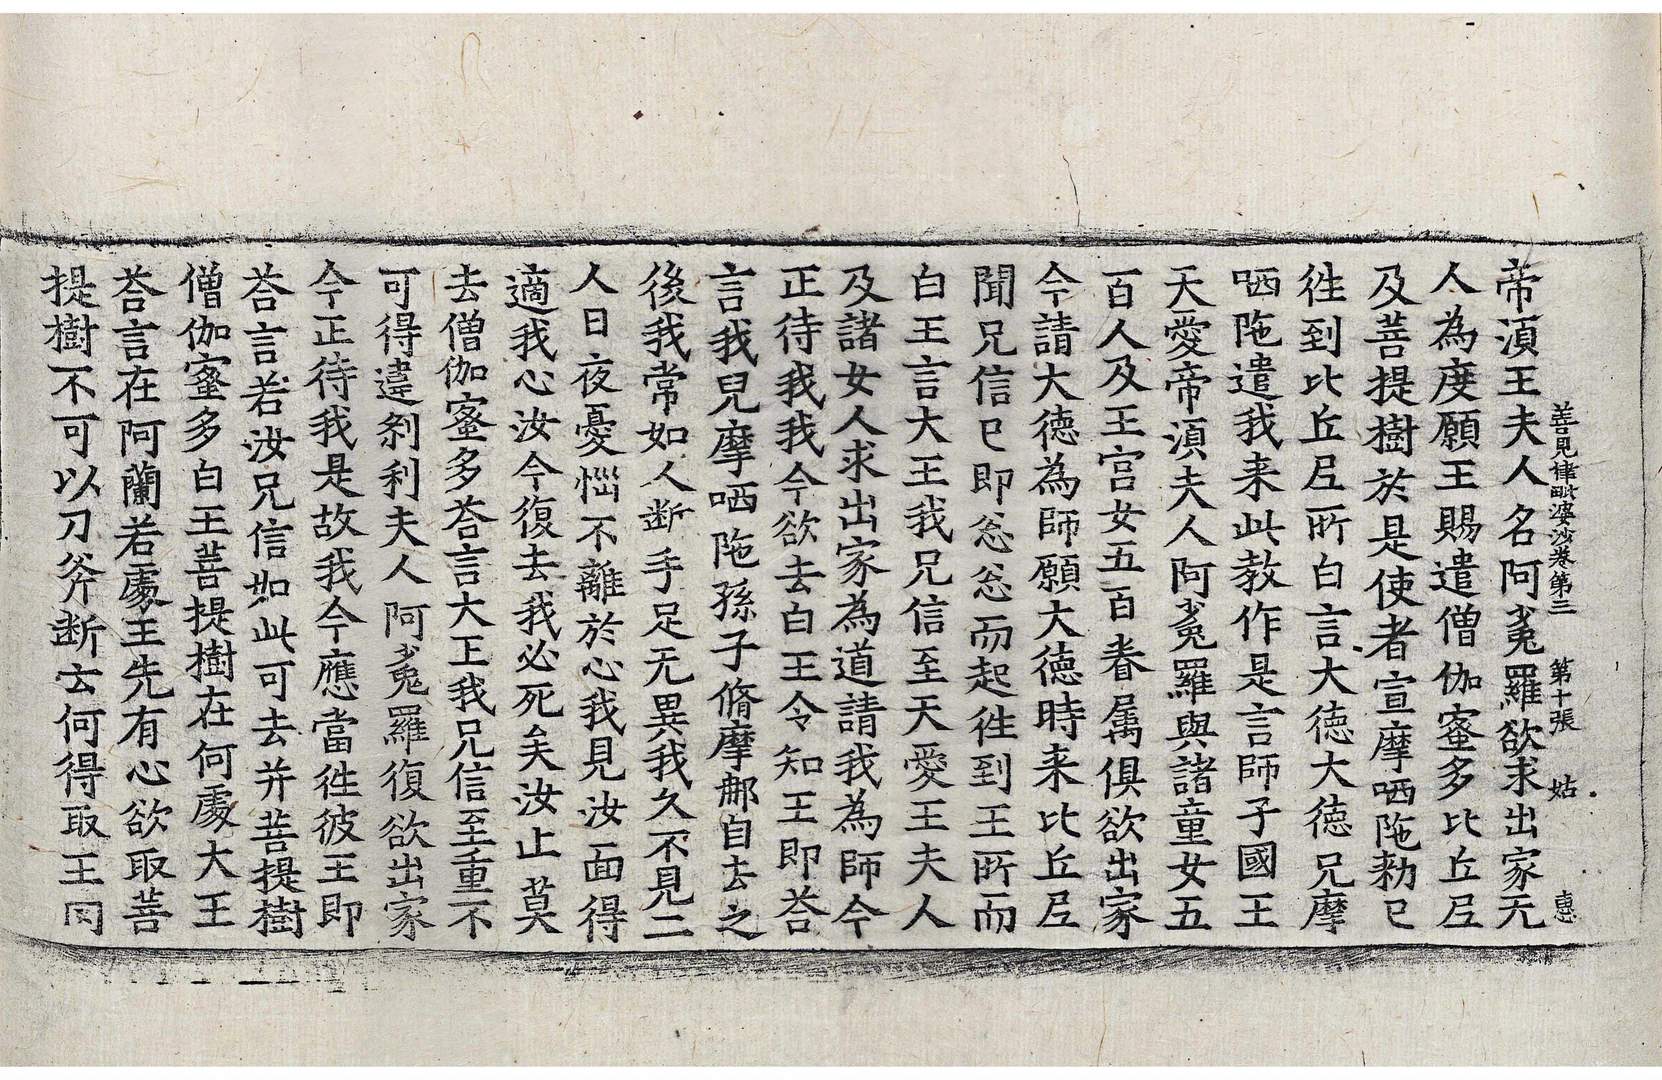 善見律毗婆沙卷第三 第十張 姑 惠
帝湏王夫人名阿㝹羅欲求出家无
人為度願王賜遣僧伽蜜多比丘尼
及菩提樹於是使者宣摩哂陁勑已
徃到比丘尼所白言大德大德兄摩
哂陁遣我来此教作是言師子國王
天愛帝湏夫人阿㝹羅與諸童女五
百人及王宫女五百眷属俱欲出家
今請大德為師願大德時来比丘尼
聞兄信已即忩忩而起徃到王所而
白王言大王我兄信至天愛王夫人
及諸女人求出家為道請我為師今
正待我我今欲去白王令知王即荅
言我兒摩哂陁孫子脩摩那自去之
後我常如人断手足无異我久不見二
人日夜憂惱不離於心我見汝面得
適我心汝今復去我必死矣汝止莫
去僧伽蜜多荅言大王我兄信至重不
可得違刹利夫人阿㝹羅復欲出家
今正待我是故我今應當徃彼王即
荅言若汝兄信如此可去并菩提樹
僧伽蜜多白王菩提樹在何處大王
荅言在阿蘭若處王先有心欲取菩
提樹不可以刀斧断云何得取王冈